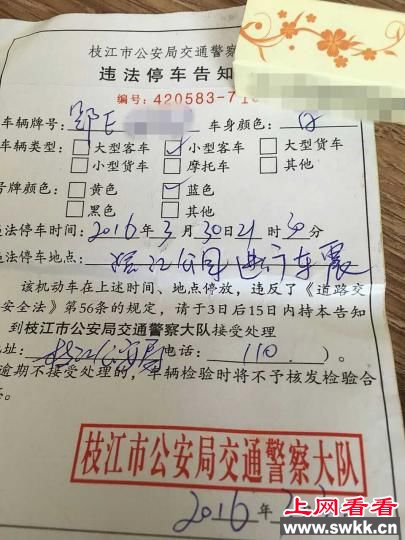 枝江市公安局交通警察
违法停车告知
编号：420583-71
车辆牌号：鄂E 车身颜色：白
车辆类型：□大型客车 ☑小型客车 □大型货车
□小型货车 □摩托车 □其他
号牌颜色：□黄色 ☑蓝色
□黑色 □其他
违法停车时间：2016年3月30日21时30分
违法停车地点：沿江公园进行车震
该机动车在上述时间、地点停放，违反了《道路交
安全法》第56条的规定，请于3日后15日内持本告知
到枝江市公安局交通警察大队接受处理
地址：枝江公安局 电话：110）。
逾期不接受处理的，车辆检验时将不予核发检验合
枝江市公安局交通警察大队
2016年
上网看看
www.swkk.cn